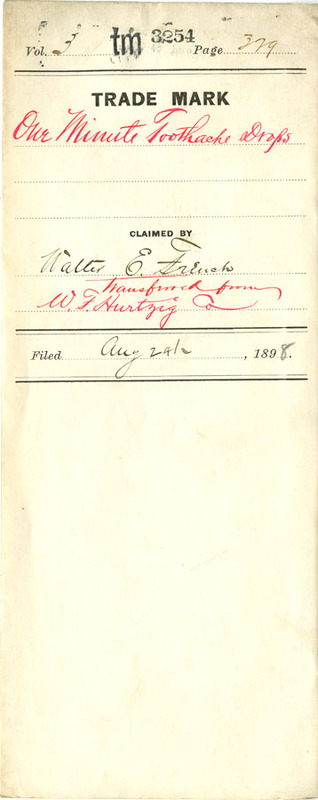 Vol. 3 tm 3254 Page 379
TRADE MARK
One Minute Toothache Drops
CLAIMED BY
Walter E. French
Transferred from
W. F. Hurtzig Co
Filed Aug 24th, 1898.